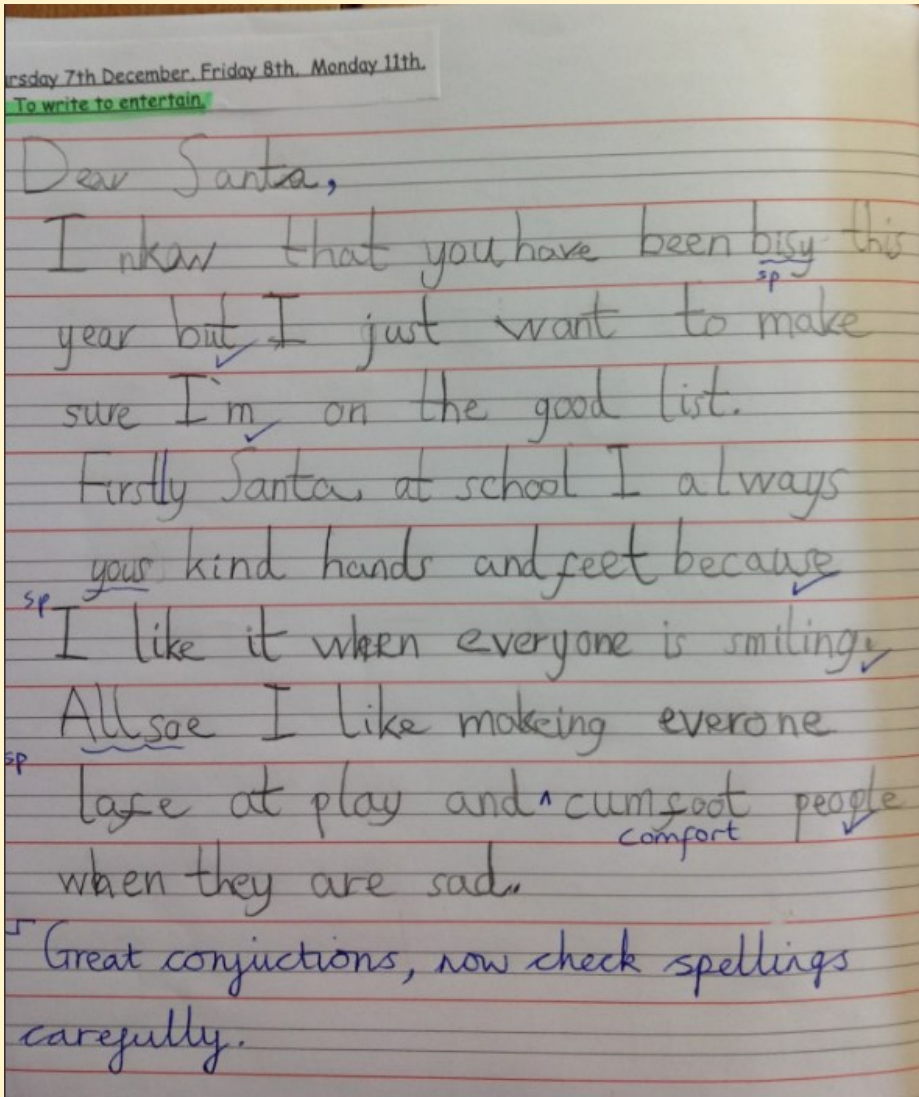 rsday 7th December. Friday 8th. Monday 11th.
To write to entertain.
Dear Santa,
I nkaw that you have been bisy this
sp
year but I just want to make
sure I'm on the good list.
Firstly Santa, at school I always
yous kind hands and feet because
sp
I like it when everyone is smiling.
All soe I like makeing everone
sp
lafe at play and ^ cumfoot people
comfort
when they are sad.
Great conjuctions, now check spellings
carefully.